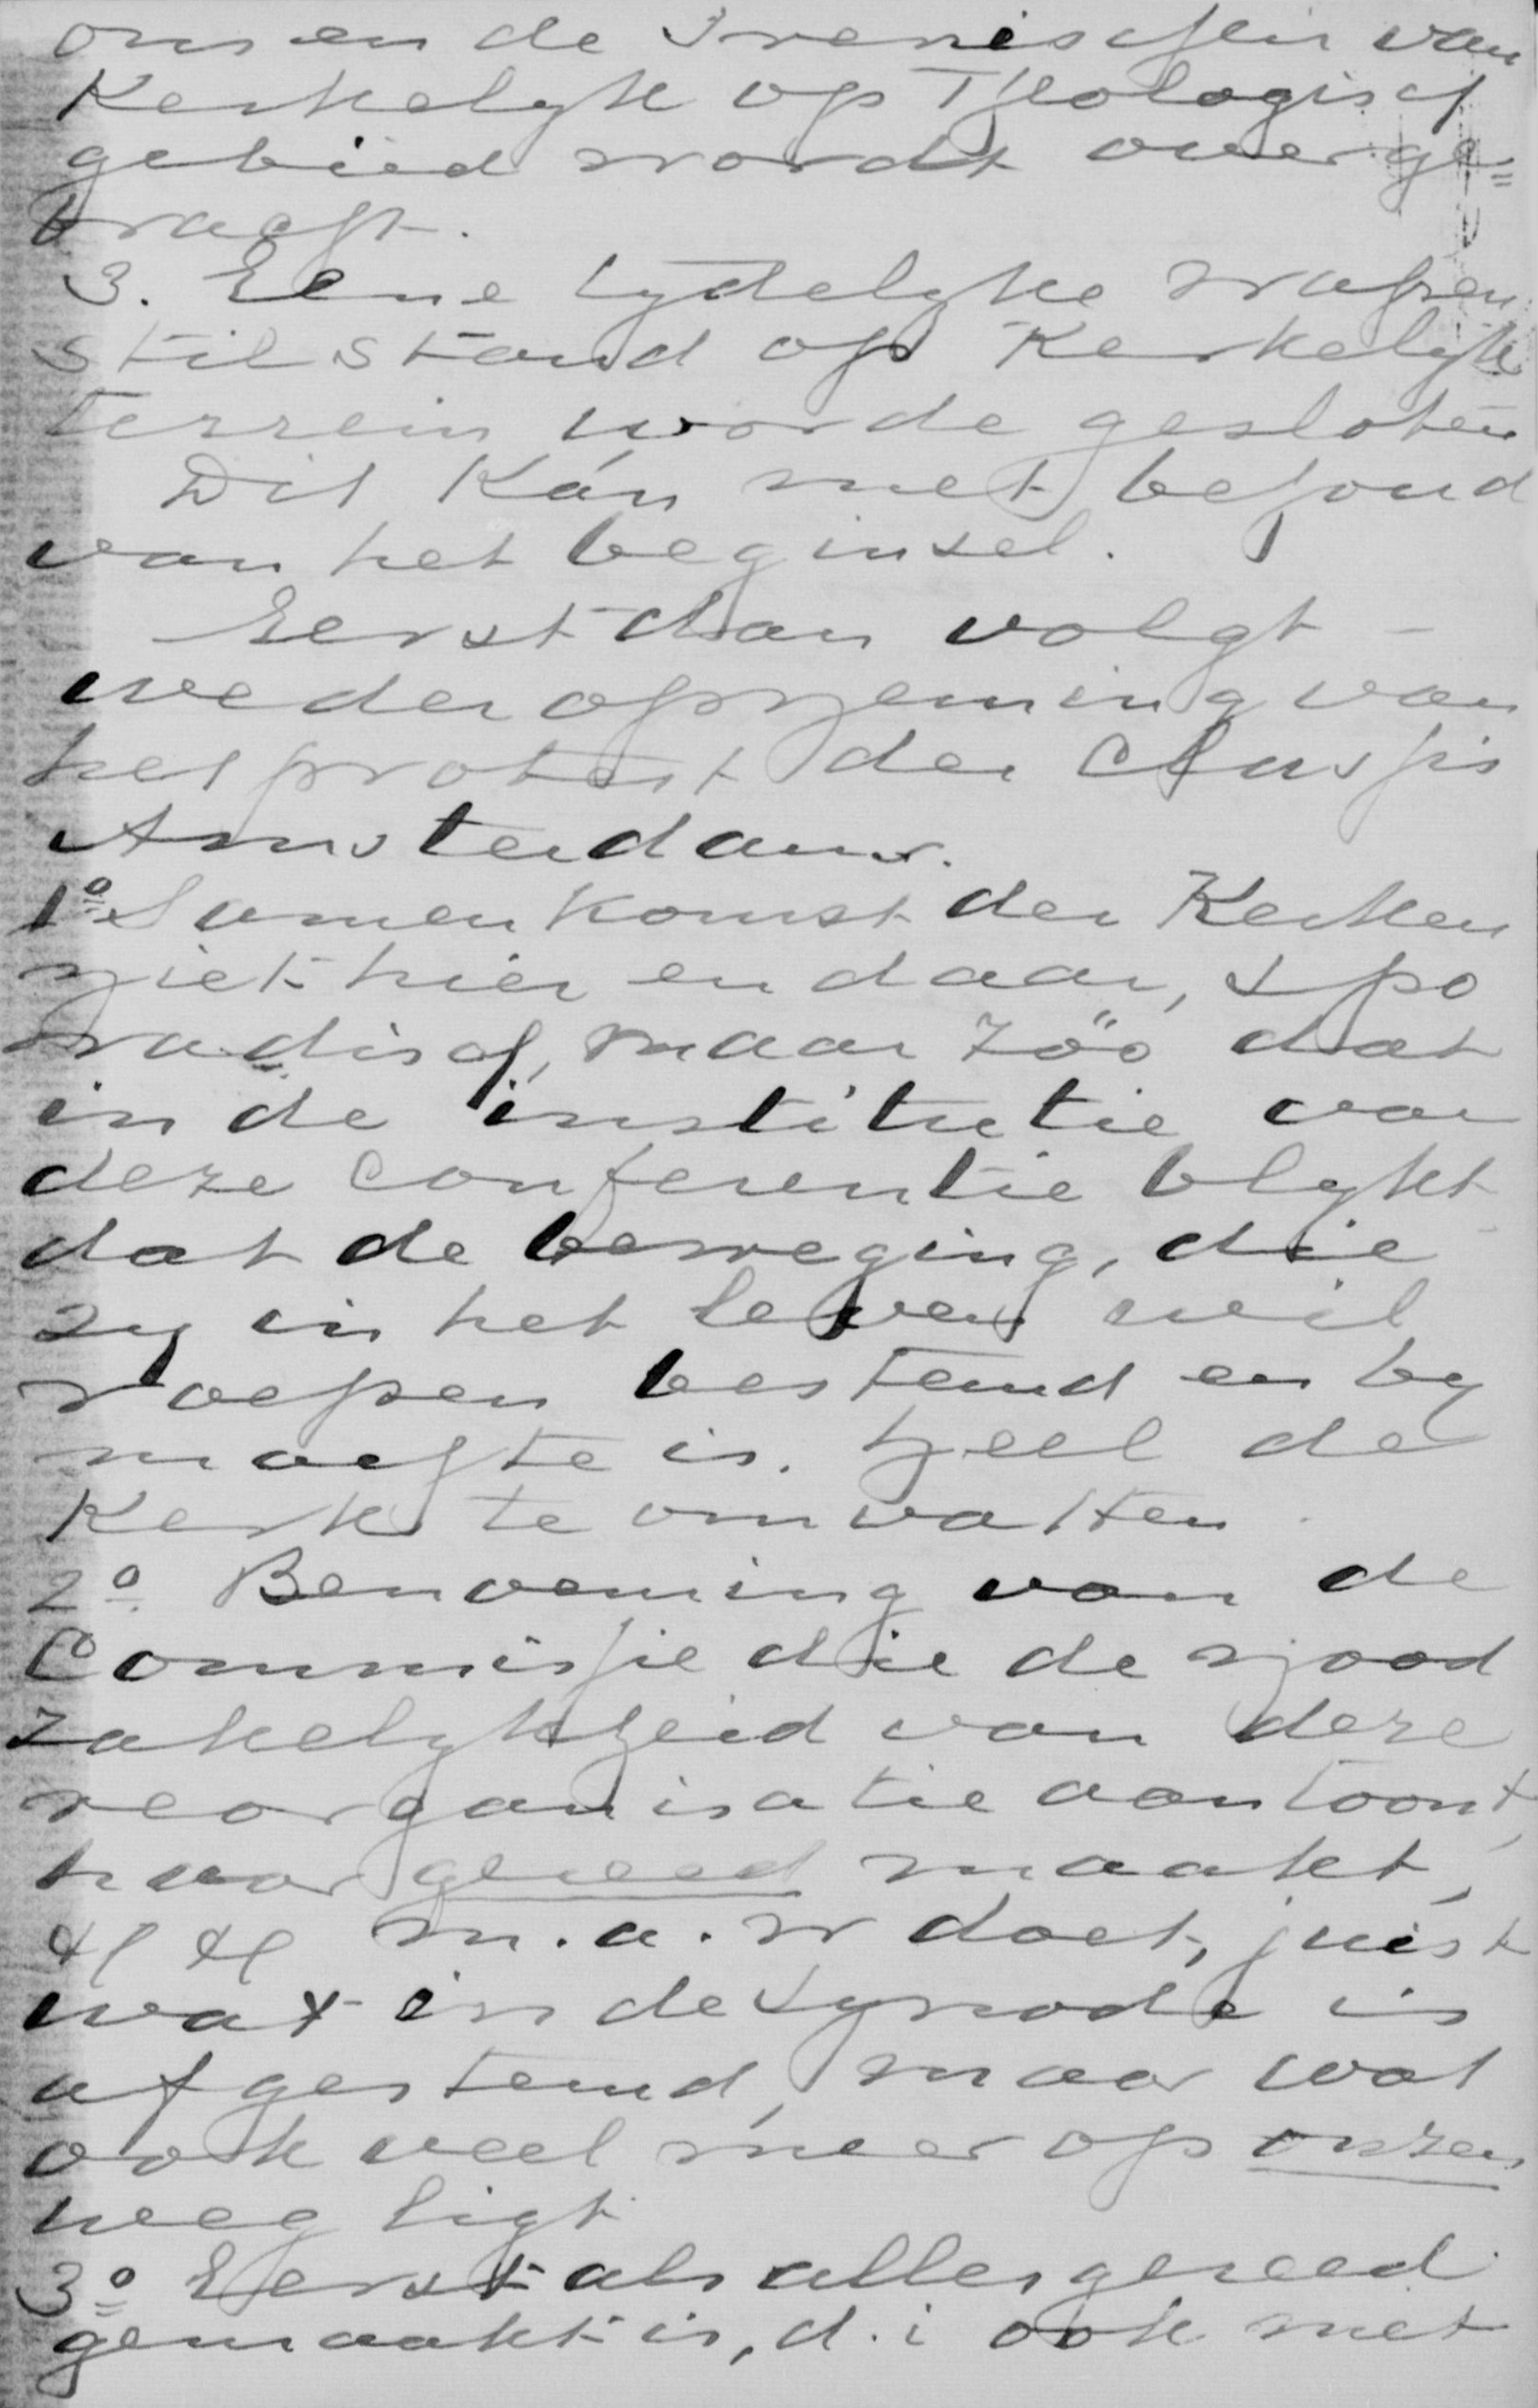 ons en de Irenischen van
Kerkelyk op Theologisch
gebied wordt overge=
bracht.
3. Eene tydelyke wapen
stilstand op Kerkelyk
terrein worde gesloten
Dit kán met behoud
van het beginsel.
Eerst dan volgt -
wederopneming van
het protest der Classis
Amsterdam.
1º Samenkomst der Kerken
niet hier en daar, spo
radisch, maar zóó dat
in de institutie van
deze conferentie blykt
dat de beweging, die
zy in het leven wil
roepen bestemd en by
machte is. heel de
Kerk te omvatten.
2º. Benoeming van de
Commissie die de nood
zakelykheid van deze
reorganisatie aantoont,
haar gereed maakt,
m.a.w doet, juist
wat in de Synode is
afgestemd, maar wat
ook veel meer op onzen
weg ligt
3º Eerst als alles gereed
gemaakt is, d.i ook met